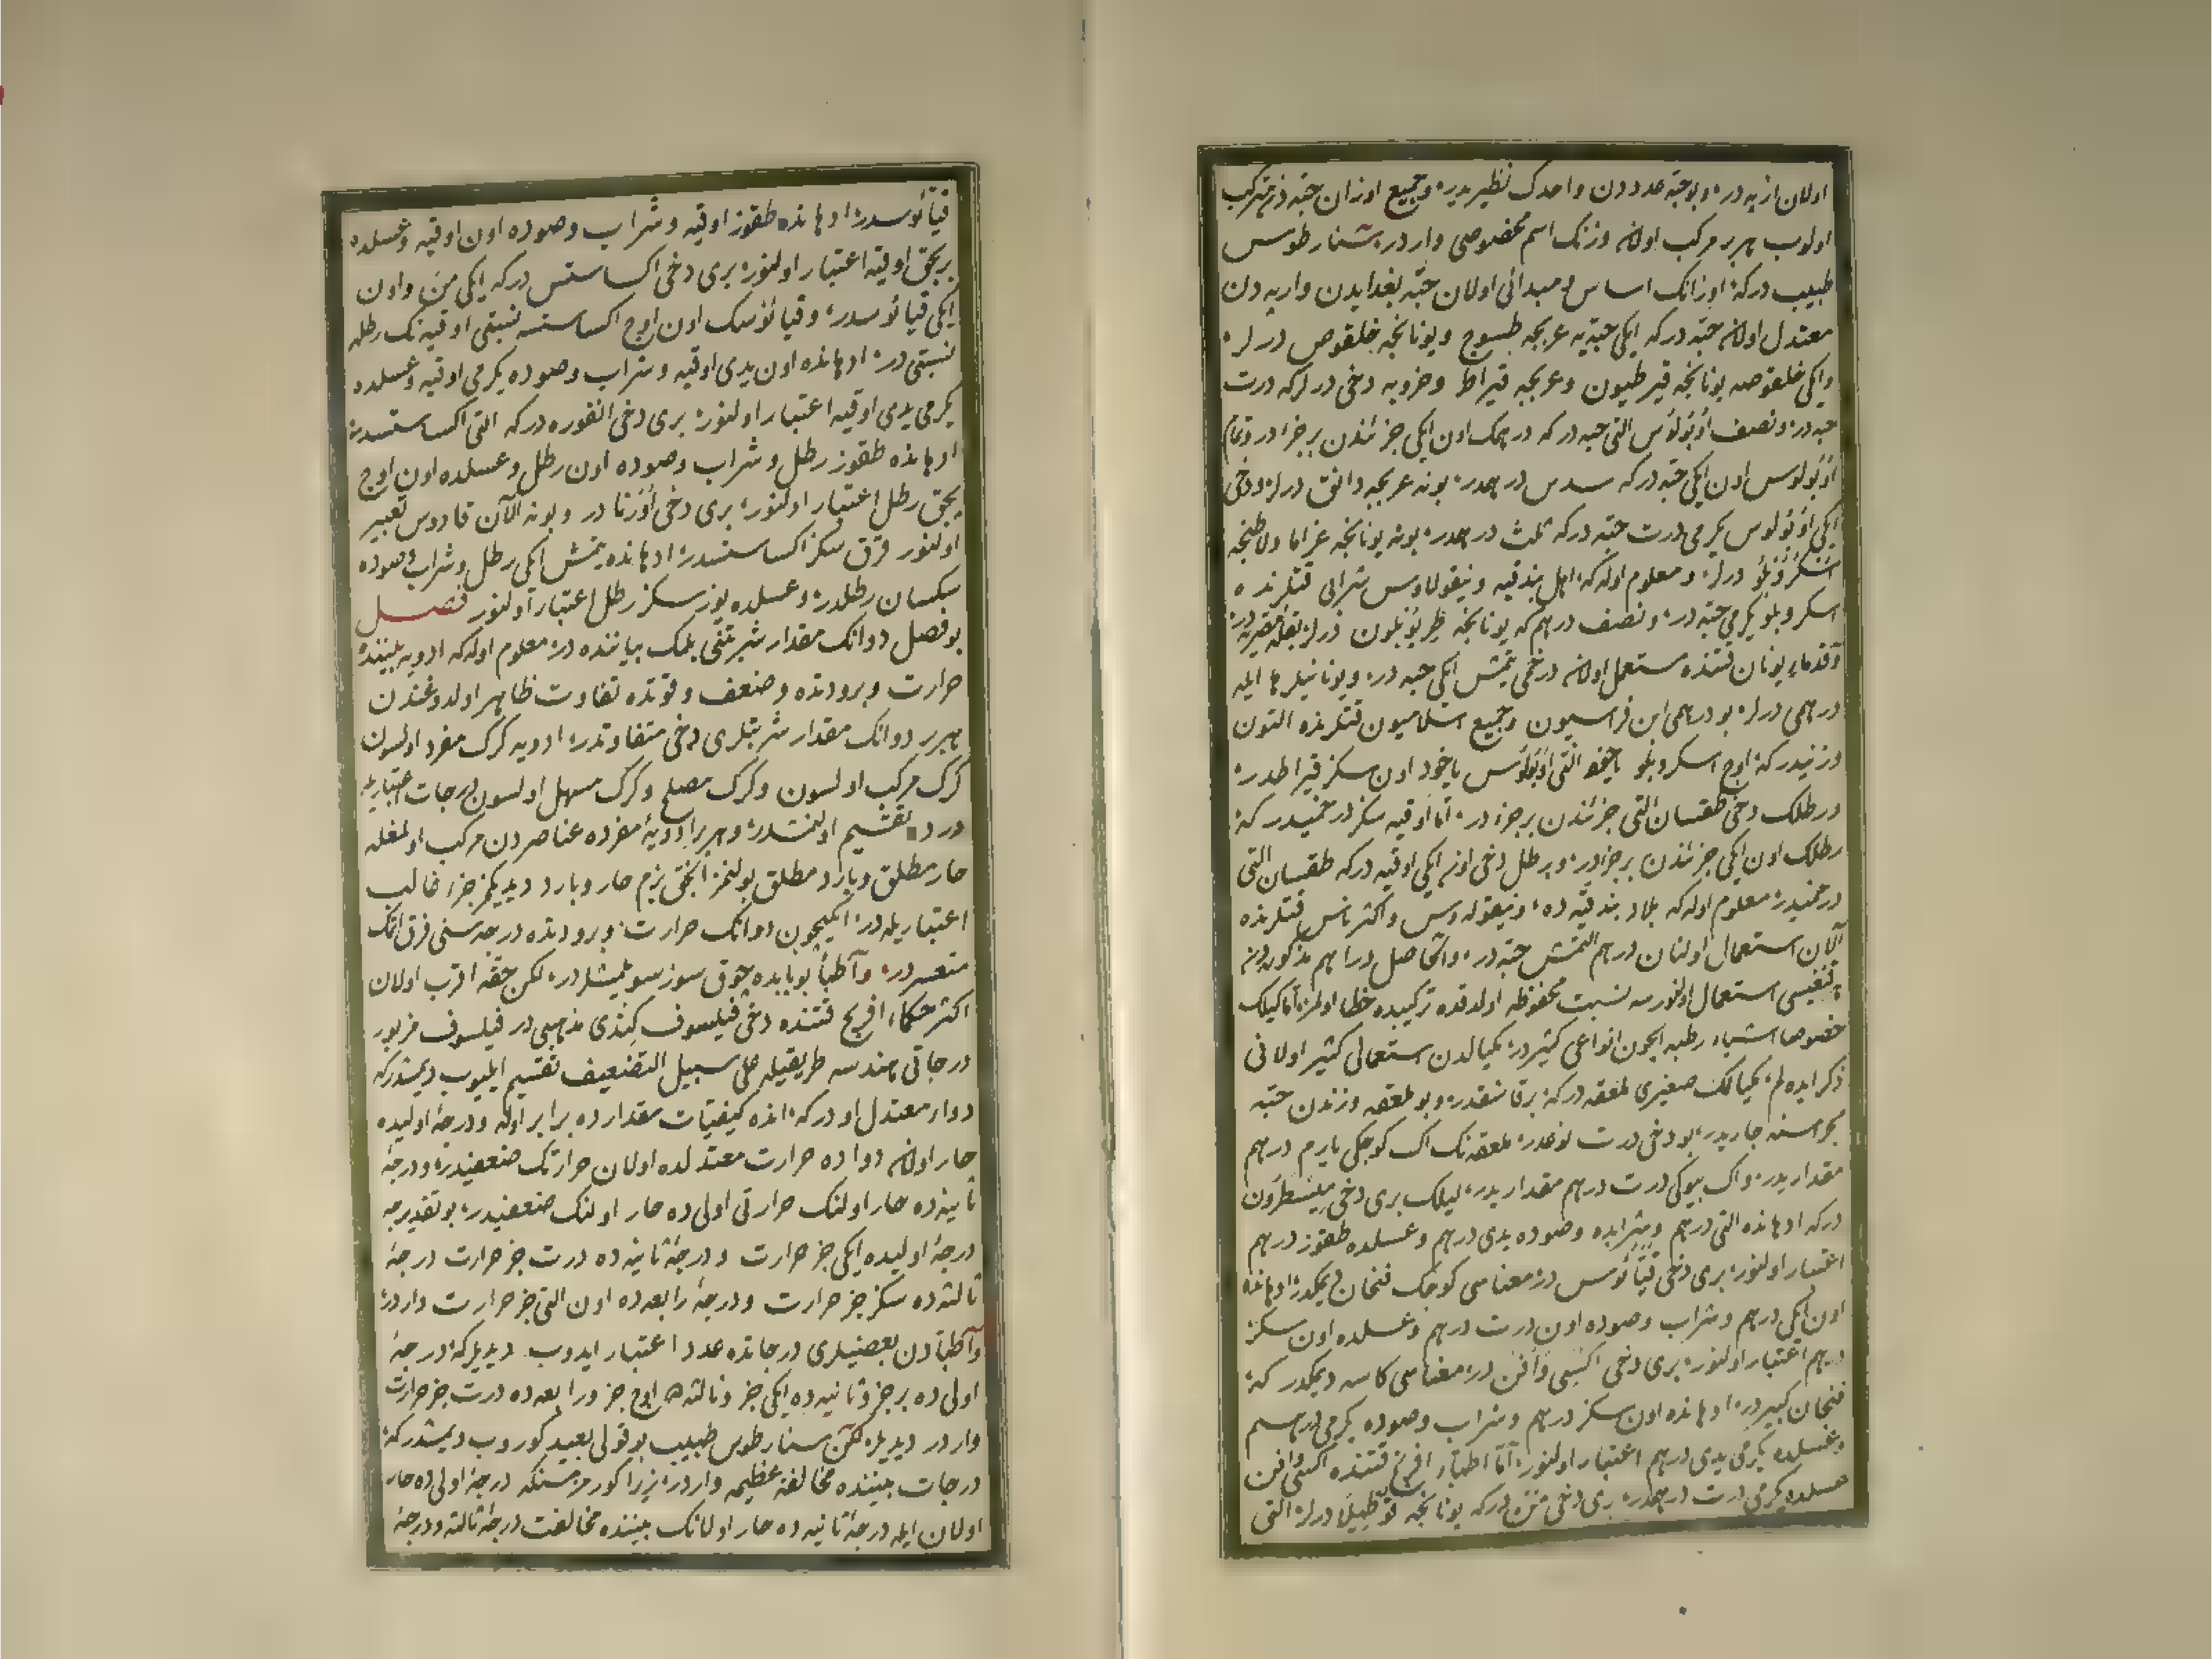 اولان ازیه در و بو حبه عدددن واحدك نظیریدر و جمیع اوزان حبه دن مترکب
اولوب هر بر مرکب اولان وزنك اسم مخصوصی واردر سنارطوس
طبیب درکه اوزانك اساس و مبدائی اولان حبه بغدایدن و ارپه دن
معتدل اولان حبه درکه ایکی حبه یه عربیجه طسوج و یونانیجه خلقوص درلر
و ایکی خلقوصه یونانیجه قیرطیون و عربیجه قیراط و خروبه دخی درلر که درت
حبه در و نصف اوبولوس التی حبه درکه درهمك اون ایکی جزئندن بر جزء در و تمام
اوبولوس اون ایکی حبه درکه سدس درهمدر بونه عربیجه دانق درلر و دخی
ایکی اوبولوس یکرمی درت حبه درکه ثلث درهمدر بونه یونانیجه غراما و لاطینجه
اسکروبلو درلر و معلوم اوله که اهل بندقیه و نیقولاوس شرابی قتلرنده
اسکروبلو یکرمی حبه در و نصف درهم که یونانیجه طریوبلون درلر
و قدماء یونان قتنده مستعمل اولان درخمی یتمش ایکی حبه در و یونانیلرها ایله
درهمی درلر بو درهمی ابن فراسیون و جمیع اسلامیون قتلرنده التون
وزنیدر که اوج اسکروبلو یاخود التی اوبولوس یاخود اون سکز قیراطدر
و رطلك دخی طقسان التی جزئندن بر جزء در اما اوقیه سکز درخمیدر که
رطلك اون ایکی جزئندن بر جزءدر و بر رطل دخی اون ایکی اوقیه درکه طقسان التی
درخمیدر معلوم اوله که بلاد بندقیه ده و نیقولاوس و اکثر ناس قتلرنده
الآن استعمال اولنان درهم التمش حبه در و الحاصل دراهم مذکوره دن
قنغیسی استعمال اولنورسه نسبت محفوظه اولدقده ترکیبده خطا اولمز اما کیلك
خصوصا اشیاء رطبه ایچون انواعی کثیردر مکیالدن استعمالی کثیر اولانی
ذکر ایده لم مکیالك صغیری لمعقه درکه بر قاشقدر و بو لمعقه وزندن حبه
مجراسنه جاریدر بو دخی درت نوعدر لمعقه نك اك کوچکی یارم درهم
مقداریدر و اك بیوکی درت درهم مقداریدر کیلك بری دخی میسطرون
درکه ادهانده التی درهم و شرابده و صوده یدی درهم و عسلده طقوز درهم
اعتبار اولنور بری دخی قیاثوس در معناسی کوچك فنجان دیمکدر ادهانده
اون ایکی درهم و شراب و صوده اون درت درهم و عسلده اون سکز
درهم اعتبار اولنور بری دخی اکسی وافن در معناسی کاسه دیمکدر که
فنجان کبیردر ادهانده اون سکز درهم و شراب و صوده یکرمی درهم
و عسلده یکرمی یدی درهم اعتبار اولنور اما اطباء افرنج قتنده اکسی وافن
عسلده یکرمی درت درهمدر بری دخی درکه یونانیجه قوطیلا درلر التی
قیاثوسدر ادهانده طقوز اوقیه و شراب و صوده اون اوقیه و عسلده
بریجق اوقیه اعتبار اولنور بری دخی اکساستس درکه ایکی من و اون
ایکی قیاثوسدر و قیاثوسك اون اوج اکساستسه نسبتی اوقیه نك رطله
نسبتی در ادهانده اون یدی اوقیه و شراب و صوده یکرمی اوقیه و عسلده
یکرمی یدی اوقیه اعتبار اولنور بری دخی انفوره درکه التی اکساستسدر
ادهانده طقوز رطل و شراب و صوده اون رطل و عسلده اون اوج
بجق رطل اعتبار اولنور بری دخی اورنا در و بونه الآن قادوس تعبیر
اولنور قرق سکز اکساستسدر ادهانده یتمش ایکی رطل و شراب و صوده
سکسان رطلدر و عسلده یوز سکز رطل اعتبار اولنور فصل
بو فصل دوانك مقدار شربتنی بلمك بیاننده در معلوم اوله که ادویه بیننده
حرارت و برودتده و ضعف و قوتده تفاوت ظاهر اولدوغندن
هر بر دوانك مقدار شربتلری دخی متفاوتدر ادویه کرك مفرد اولسون
کرك مرکب اولسون و کرك مصلح و کرك مسهل اولسون درجات اعتباریله
درده تقسیم اولنمشدر و هر بر ادویۀ مفرده عناصردن مرکب اولمغله
حار مطلق و بارد مطلق بولنمز انجق بزم حار و بارد دیدیکمز جزء غالب
اعتباریله در انیکچون دوانك حرارت و برودتده درجه سنی فرق اتمك
متعسردر و اطبا بو بابده چوق سوز سویلمشلردر لکن حقه اقرب اولان
اکثر حکماء افرنج قتنده دخی فیلسوف کندی مذهبی در فیلسوف مزبور
درجاتی هندسه طریقیله علی سبیل التضعیف تقسیم ایلیوب دیمشدرکه
دواء معتدل اودرکه انده کیفیات مقدارده برابر اوله و درجۀ اولیده
حار اولان دواده حرارت معتدلده اولان حرارتك ضعفیدر و درجۀ
ثانیه ده حار اولنك حرارتی اولی ده حار اولنك ضعفیدر بو تقدیرجه
درجۀ اولیده ایکی جز حرارت و درجۀ ثانیه ده درت جز حرارت درجۀ
ثالثه ده سکز جز حرارت و درجۀ رابعه ده اون التی جز حرارت واردر
و اطبادن بعضیلری درجاتده عدد اعتبار ایدوب دیدیلر که درجۀ
اولی ده بر جز و ثانیه ده ایکی جز و ثالثه ده اوج جز و رابعه ده درت جز حرارت
واردر دیدیلر لکن سنارطوس طبیب بو قولی بعید کوروب دیمشدر که
درجات بیننده مخالفۀ عظیمه واردر زیرا کورمزمسنکه درجۀ اولی ده حار
اولان ایله درجۀ ثانیه ده حار اولانك بیننده مخالفت درجۀ ثالثه و درجۀ